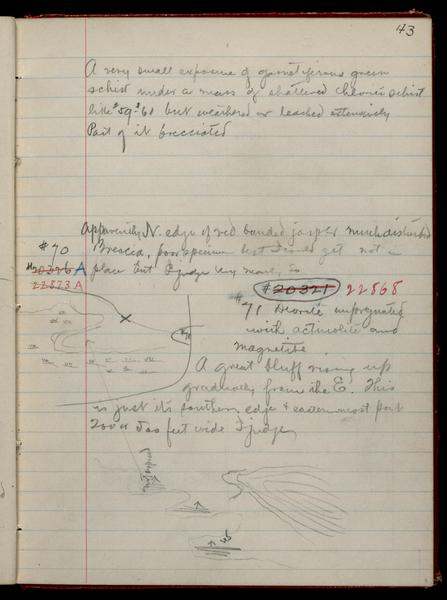 43
A very small exposure of garnetiferous green
schist under a mass of shattered chloritic schist
like #59-#60 but weathered or leached extensively
Part of it brecciated
Apparently N. edge of red banded jasper much disturbed
#70 Breccia, poor specimen best I could get not in
20326 A place but I judge very nearly so
22873 A
#20327 22868
#71 Diorite impregnated
with actinolite and
magnetite
A great bluff rising up
gradually from the E. This
is just its southern edge & eastern most part
200 or 300 feet wide I judge